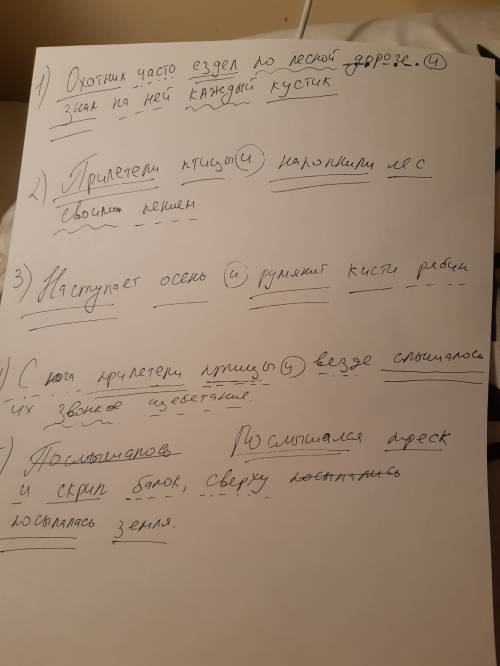 1) Охотник часто ездел по лесной дороге. и
знал на ней каждый кустик
2) Прилетели птицы и наполнили лес
своим пением
3) Наступает осень и румянит кисти рябин
4) С юга прилетели птицы и везде слышалось
их звонкое щебетание.
Послышалось Послышался треск
и скрип балок, сверху посыпались
посыпалась земля.